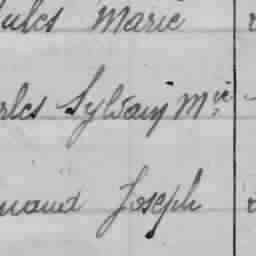 Jules Marie
rles Sylvain Mie
nand Joseph